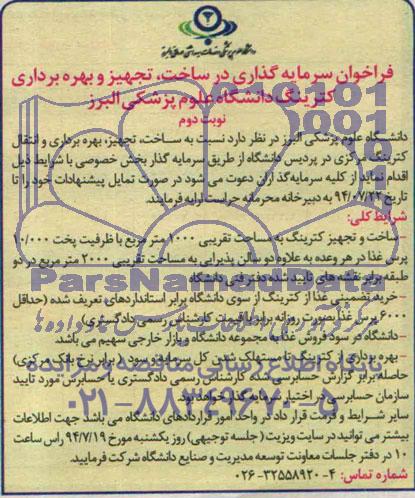 فراخوان سرمایه گذاری در ساخت، تجهیز و بهره برداری
کترینگ دانشگاه علوم پزشکی البرز
نوبت دوم
دانشگاه علوم پزشکی البرز در نظر دارد نسبت به ساخت، تجهیز، بهره برداری و انتقال
کترینگ مرکزی در پردیس دانشگاه از طریق سرمایه گذار بخش خصوصی با شرایط ذیل
اقدام نماید از کلیه سرمایه گذاران دعوت می شود در صورت تمایل پیشنهادات خود را تا
تاریخ ۹۴/۰۷/۲۲ به دبیرخانه محرمانه حراست ارایه فرمایند.
شرایط کلی:
ساخت و تجهیز کترینگ به مساحت تقریبی ۱۰۰۰ متر مربع با ظرفیت پخت ۱۰/۰۰۰
پرس غذا در هر وعده به علاوه دو سالن پذیرایی به مساحت تقریبی ۲۰۰۰ متر مربع در دو
طبقه برابر نقشه های تایید شده دفتر فنی دانشگاه
- خرید تضمینی غذا از کترینگ از سوی دانشگاه برابر استانداردهای تعریف شده (حداقل
۶۰۰۰ پرس غذا بصورت روزانه برابر با قیمت کارشناس رسمی دادگستری)
- دانشگاه در سود فروش غذا به مجموعه دانشگاه و بازار خارجی سهیم می باشد
- بهره برداری از کترینگ تا مستهلک شدن کل سرمایه و سود (برابر نرخ بانک مرکزی)
حاصله برابر گزارش حسابرسی شده کارشناس رسمی دادگستری یا حسابرس مورد تایید
سازمان حسابرسی در اختیار سرمایه گذار خواهد بود
سایر شرایط و فرمت قرارداد در واحد امور قراردادهای دانشگاه می باشد جهت اطلاعات
بیشتر می توانید در سایت ویزیت (جلسه توجیهی) روز یکشنبه مورخ ۹۴/۷/۱۹ راس ساعت
۱۰ در دفتر جلسات معاونت توسعه مدیریت و منابع دانشگاه شرکت فرمایید.
شماره تماس: ۴-۳۲۵۵۸۹۲۰-۰۲۶
ParsNamadData
پایگاه اطلاع رسانی مناقصه و مزایده